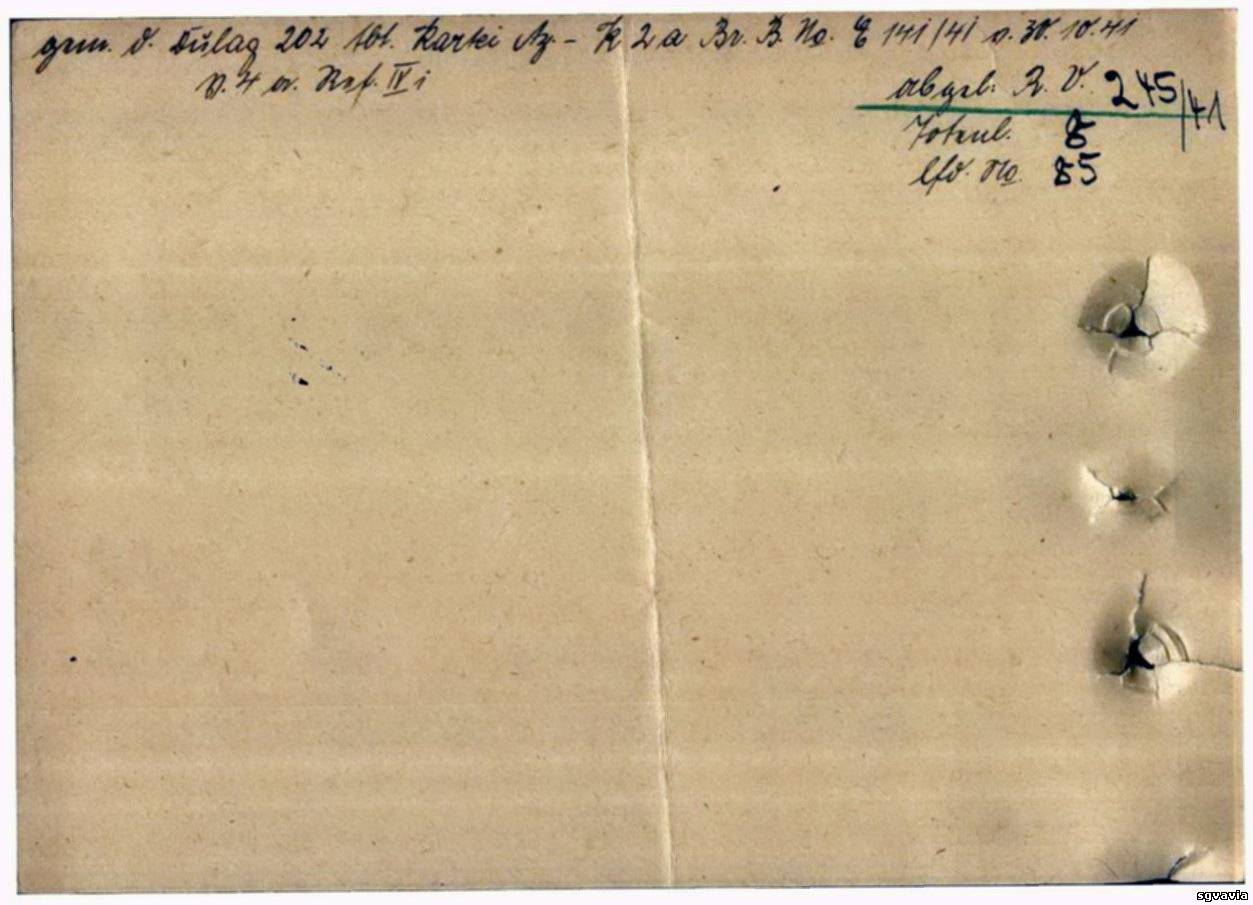 gem. d. Dulag 202 Abt. Kartei Az. - K 2 a Br. B. No. E 141/41 v. 30.10.41
v. Ref. IV i
abgel. R. V. 245/41
Totenl. 8
lfd. No. 85
sgvavia